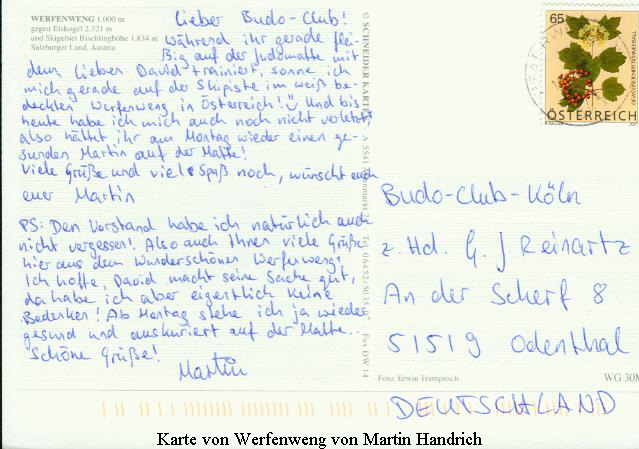 WERFENWENG 1.000 m
gegen Eiskogel 2.321 m
und Skigebiet Bischlinghöhe 1.834 m
Salzburger Land, Austria
Lieber Budo-Club!
Während ihr gerade flei-
ßig auf der Judomatte mit
dem lieben David trainiert, sonne ich
mich gerade auf der Skipiste im weiß be-
deckten Werfenweng in Österreich! Und bis
heute habe ich mich auch noch nicht verletzt,
also hättet ihr am Montag wieder einen ge-
sunden Martin auf der Matte!
Viele Grüße und viel Spaß noch, wünscht euch
euer Martin
PS: Den Vorstand habe ich natürlich auch
nicht vergessen! Also auch Ihnen viele Grüße
hier aus dem Wunderschönen Werfenweng!
Ich hoffe, David macht seine Sache gut,
da habe ich aber eigentlich keine
Bedenken! Ab Montag stehe ich ja wieder
gesund und auskuriert auf der Matte..
Schöne Grüße!
Martin
© SCHNEIDER KARTEN A-5541 Tel. Fax DW 14
65
ÖSTERREICH
Budo-Club-Köln
z. Hd. G. J Reinartz
An der Scherf 8
51519 Odenthal
DEUTSCHLAND
Foto: Erwin Trampitsch
WG 30M
Karte von Werfenweng von Martin Handrich